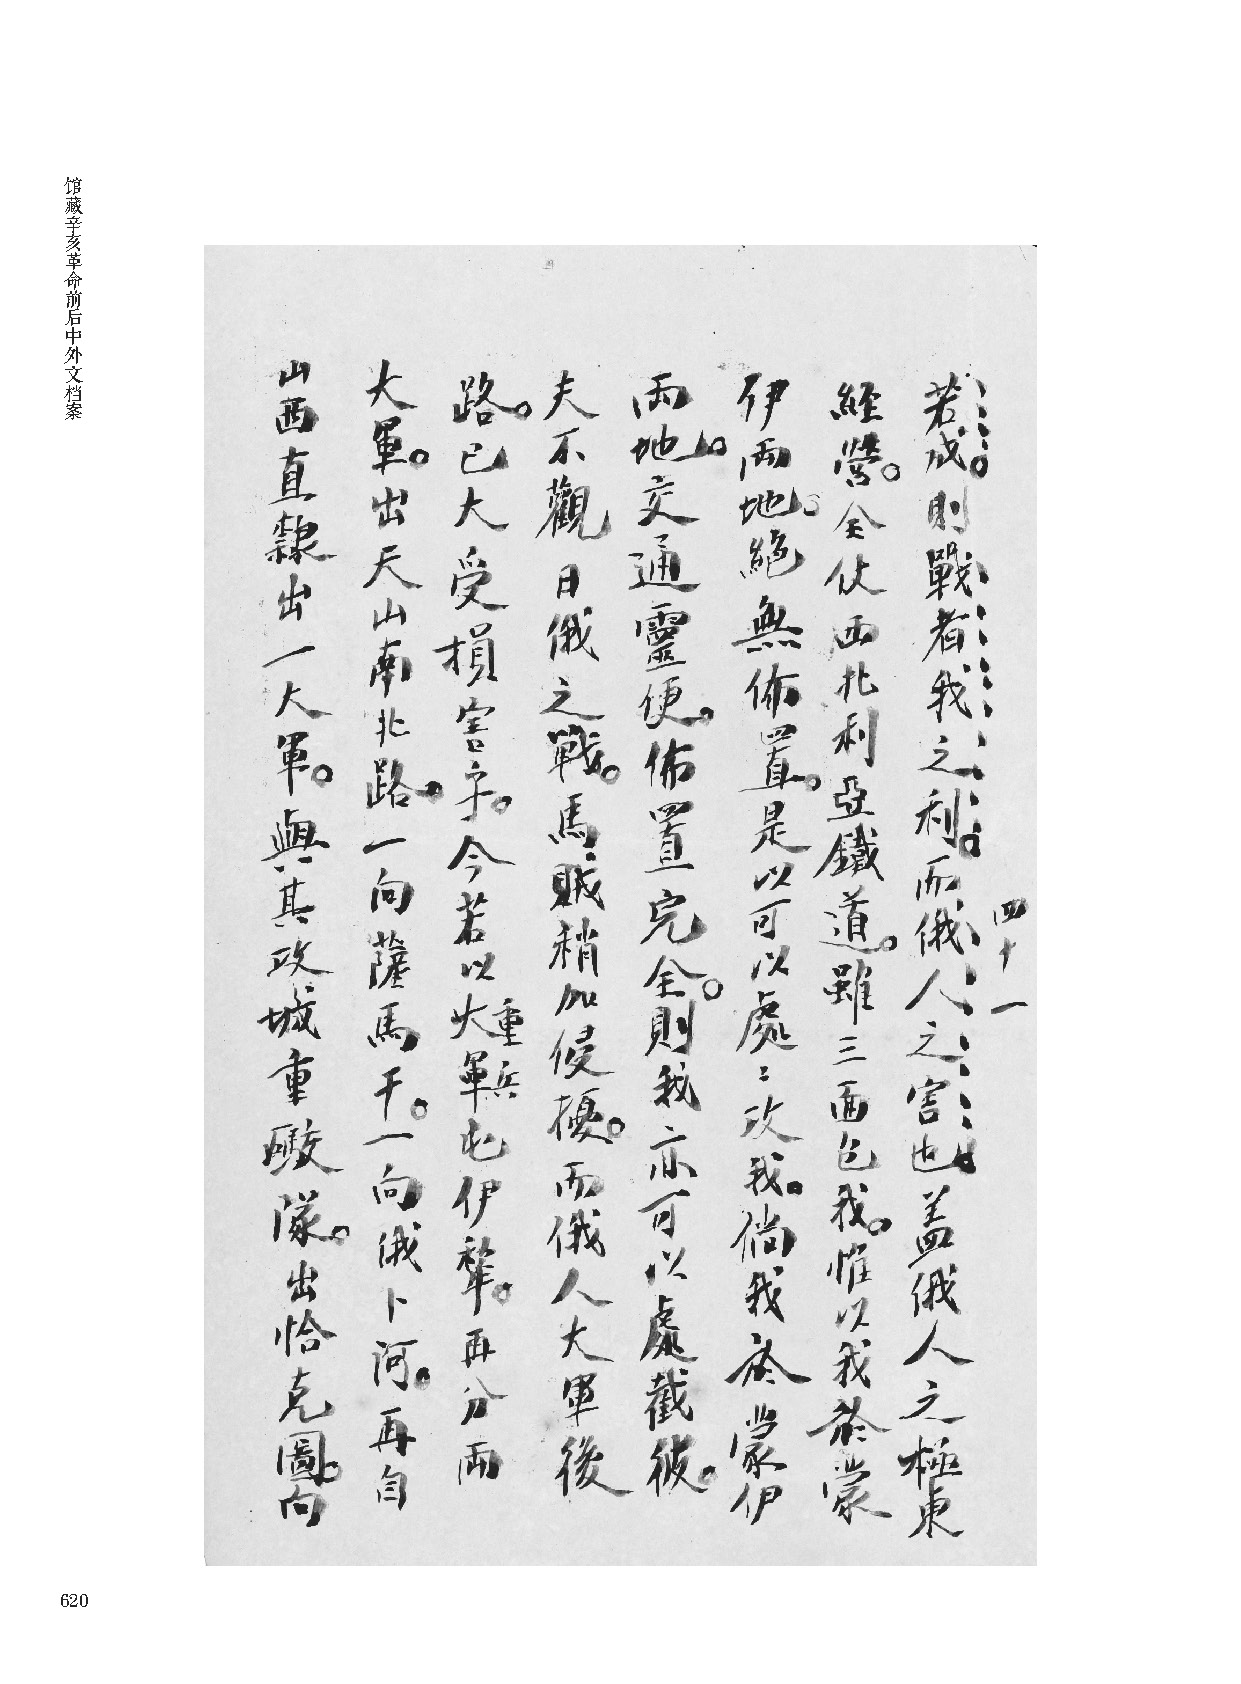 馆藏辛亥革命前后中外文档案
四十一
若成。則戰者我之利。而俄人之害也。盖俄人之極東
經營。全仗西北利亞鐵道。雖三面包我。惟以我於蒙
伊兩地。絕無佈置。是以可以處〻攻我。倘我於蒙伊
兩地。交通靈便。佈置完全。則我亦可以處截彼。
夫不觀日俄之戰。馬賊稍加侵擾。而俄人大軍後
路。已大受損害乎。今若以大軍重兵屯伊犂。再分兩
大軍。出天山南北路。一向薩馬干。一向俄卜河。再自
山西直隸出一大軍。與其攻城重礮隊。出恰克圖。向
620